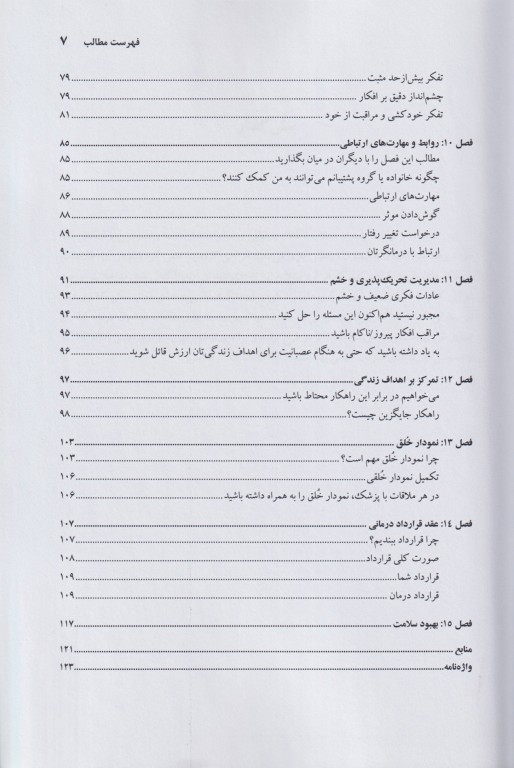 فهرست مطالب ۷
تفکر بیش‌ازحد مثبت ........ ۷۹
چشم‌انداز دقیق بر افکار ........ ۷۹
تفکر خودکشی و مراقبت از خود ........ ۸۱
فصل ۱۰: روابط و مهارت‌های ارتباطی ........ ۸۵
مطالب این فصل را با دیگران در میان بگذارید ........ ۸۵
چگونه خانواده یا گروه پشتیبانم می‌توانند به من کمک کنند؟ ........ ۸۵
مهارت‌های ارتباطی ........ ۸۶
گوش‌دادن موثر ........ ۸۸
درخواست تغییر رفتار ........ ۸۹
ارتباط با درمانگرتان ........ ۹۰
فصل ۱۱: مدیریت تحریک‌پذیری و خشم ........ ۹۱
عادات فکری ضعیف و خشم ........ ۹۳
مجبور نیستید هم‌اکنون این مسئله را حل کنید ........ ۹۴
مراقب افکار پیروز/ناکام باشید ........ ۹۵
به یاد داشته باشید که حتی به هنگام عصبانیت برای اهداف زندگی‌تان ارزش قائل شوید ........ ۹۶
فصل ۱۲: تمرکز بر اهداف زندگی ........ ۹۷
می‌خواهیم در برابر این راهکار محتاط باشید ........ ۹۷
راهکار جایگزین چیست؟ ........ ۹۸
فصل ۱۳: نمودار خُلق ........ ۱۰۳
چرا نمودار خُلق مهم است؟ ........ ۱۰۳
تکمیل نمودار خُلقی ........ ۱۰۶
در هر ملاقات با پزشک، نمودار خُلق را به همراه داشته باشید ........ ۱۰۶
فصل ۱۴: عقد قرارداد درمانی ........ ۱۰۷
چرا قرارداد ببندیم؟ ........ ۱۰۷
صورت کلی قرارداد ........ ۱۰۸
قرارداد شما ........ ۱۰۹
قرارداد درمان ........ ۱۰۹
فصل ۱۵: بهبود سلامت ........ ۱۱۷
منابع ........ ۱۲۱
واژه‌نامه ........ ۱۲۳